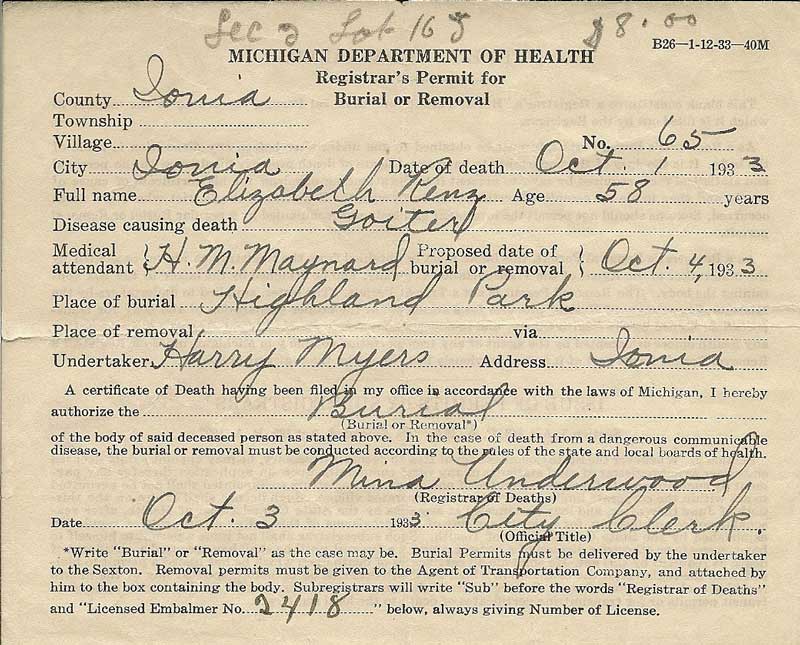 Sec 2 Lot 165 $8.00
B26—1-12-33—40M
MICHIGAN DEPARTMENT OF HEALTH
Registrar's Permit for
Burial or Removal
County Ionia
Township
Village
No. 65
City Ionia Date of death Oct. 1 1933
Full name Elizabeth Renz Age 58 years
Disease causing death Goiter
Medical attendant } H. M. Maynard Proposed date of burial or removal } Oct. 4, 1933
Place of burial Highland Park
Place of removal via
Undertaker Harry Myers Address Ionia
A certificate of Death having been filed in my office in accordance with the laws of Michigan, I hereby
authorize the Burial
(Burial or Removal*)
of the body of said deceased person as stated above. In the case of death from a dangerous communicable
disease, the burial or removal must be conducted according to the rules of the state and local boards of health.
Mina Underwood
(Registrar of Deaths)
Date Oct. 3 1933 City Clerk.
(Official Title)
*Write "Burial" or "Removal" as the case may be. Burial Permits must be delivered by the undertaker
to the Sexton. Removal permits must be given to the Agent of Transportation Company, and attached by
him to the box containing the body. Subregistrars will write "Sub" before the words "Registrar of Deaths"
and "Licensed Embalmer No. 2418 " below, always giving Number of License.